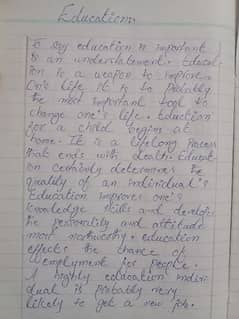 Education
To say education is important
is an understatement. Educat-
ion is a weapon to improve
One's life. It is to probably
the most important tool to
change one's life. Eduction
for a child begins at
home. It is a lifelong Process
that ends with death. Educat
on certainly determines the
quality of an individual's
Education improves one's
knowledge skills and develops
the personality and attitude
most noteworthy. education
effects the chance of
employment for people.
A highly education indivi-
dual is probably very
likely to get a new job.